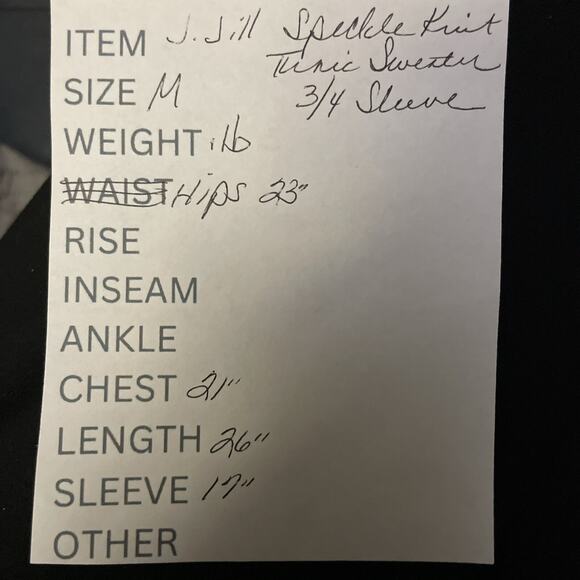 ITEM J. Jill Speckle Knit
Tunic Sweater
SIZE M 3/4 Sleeve
WEIGHT 1lb
WAIST Hips 23"
RISE
INSEAM
ANKLE
CHEST 21"
LENGTH 26"
SLEEVE 17"
OTHER